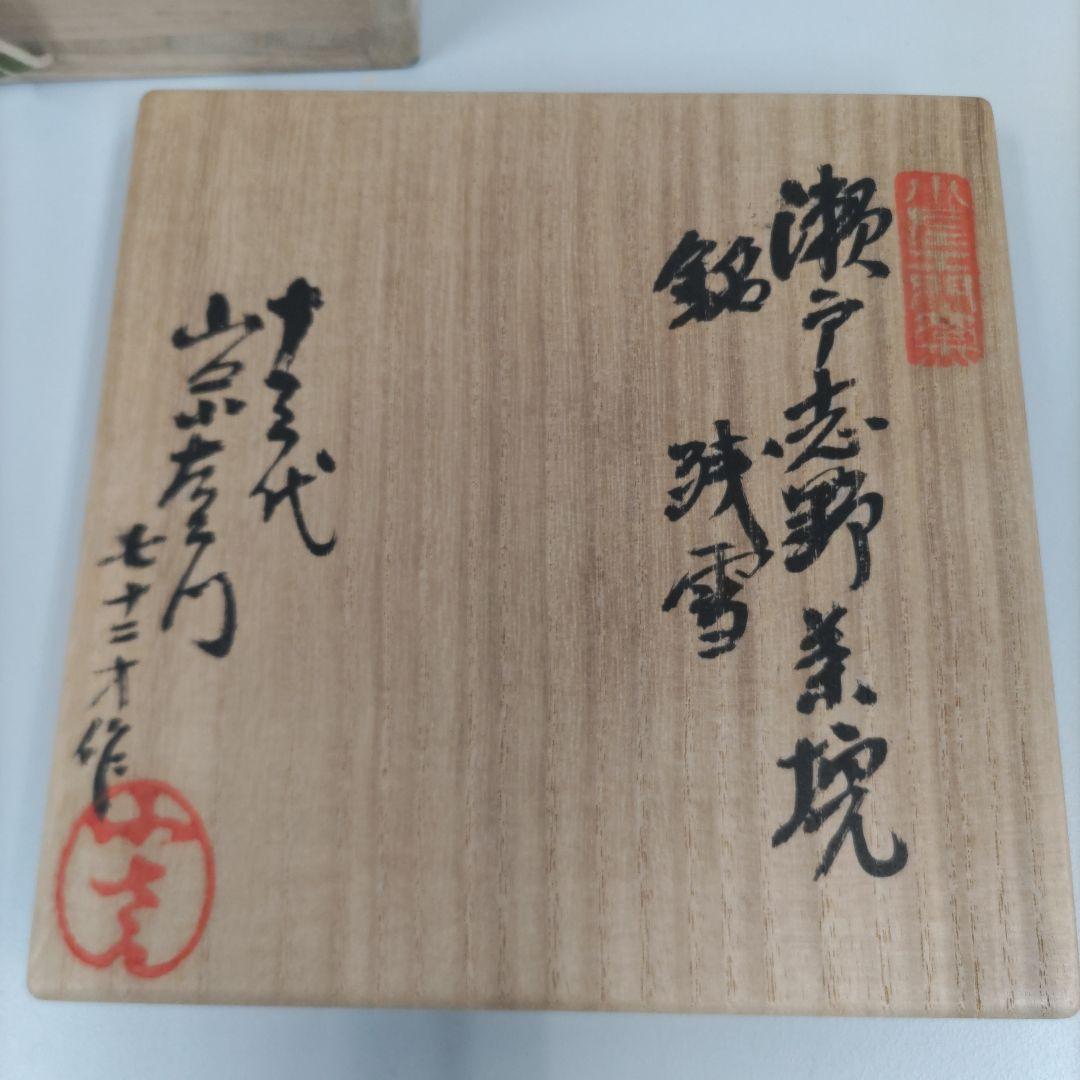 瀬戸志野茶垸
銘 残雪
十三代
山宗左衛門
七十二才作